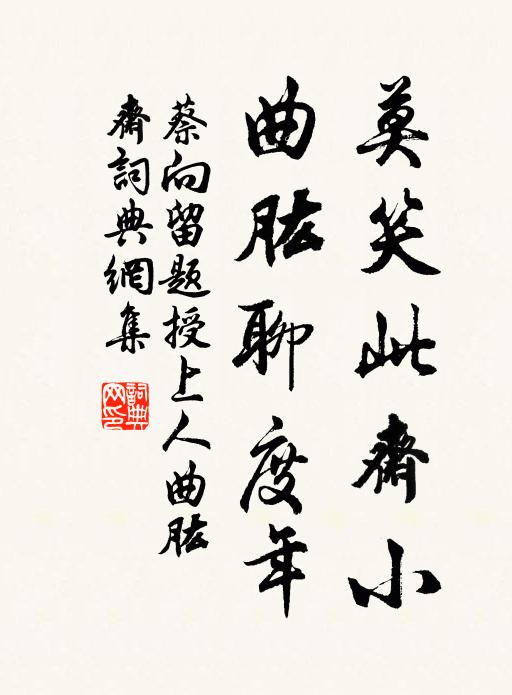 莫笑此齋小
曲肱聊度年
蔡向留題授上人曲肱
齋詞典網集
詞典
网印